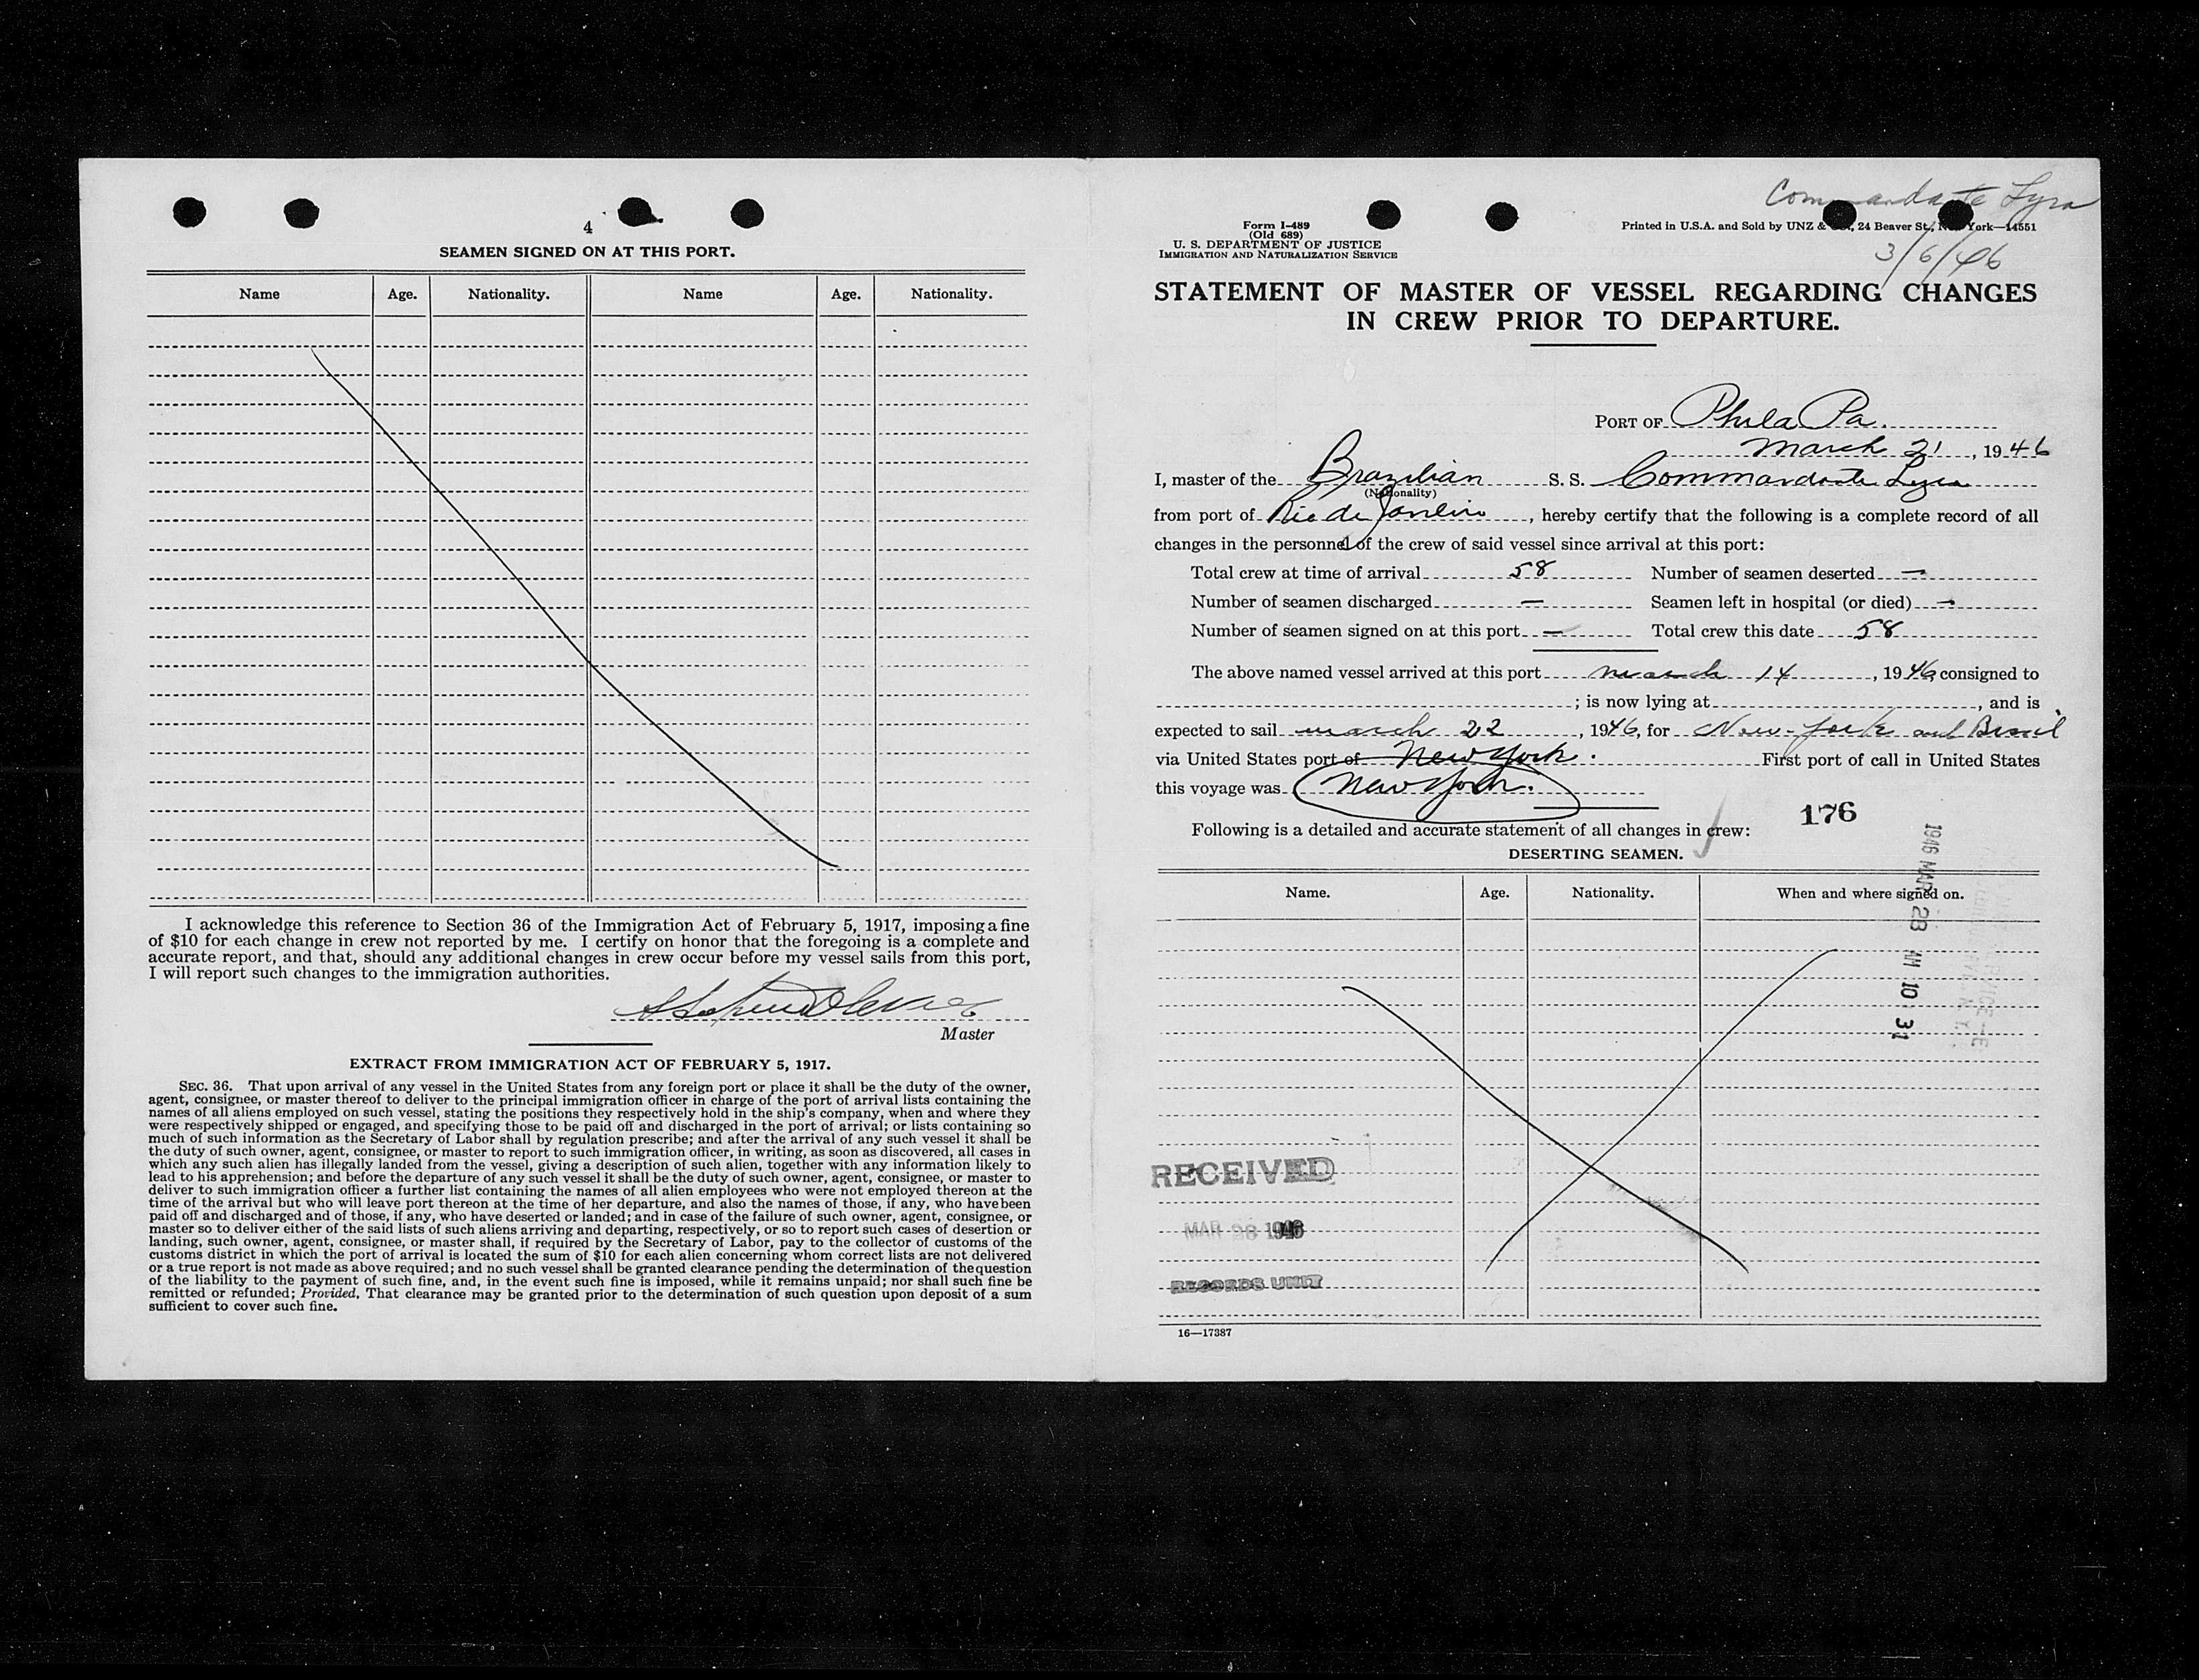 4
SEAMEN SIGNED ON AT THIS PORT.
Name Age. Nationality. Name Age. Nationality.
I acknowledge this reference to Section 36 of the Immigration Act of February 5, 1917, imposing a fine
of $10 for each change in crew not reported by me. I certify on honor that the foregoing is a complete and
accurate report, and that, should any additional changes in crew occur before my vessel sails from this port,
I will report such changes to the immigration authorities.
Master
EXTRACT FROM IMMIGRATION ACT OF FEBRUARY 5, 1917.
SEC. 36. That upon arrival of any vessel in the United States from any foreign port or place it shall be the duty of the owner,
agent, consignee, or master thereof to deliver to the principal immigration officer in charge of the port of arrival lists containing the
names of all aliens employed on such vessel, stating the positions they respectively hold in the ship's company, when and where they
were respectively shipped or engaged, and specifying those to be paid off and discharged in the port of arrival; or lists containing so
much of such information as the Secretary of Labor shall by regulation prescribe; and after the arrival of any such vessel it shall be
the duty of such owner, agent, consignee, or master to report to such immigration officer, in writing, as soon as discovered, all cases in
which any such alien has illegally landed from the vessel, giving a description of such alien, together with any information likely to
lead to his apprehension; and before the departure of any such vessel it shall be the duty of such owner, agent, consignee, or master to
deliver to such immigration officer a further list containing the names of all alien employees who were not employed thereon at the
time of the arrival but who will leave port thereon at the time of her departure, and also the names of those, if any, who have been
paid off and discharged and of those, if any, who have deserted or landed; and in case of the failure of such owner, agent, consignee, or
master so to deliver either of the said lists of such aliens arriving and departing, respectively, or so to report such cases of desertion or
landing, such owner, agent, consignee, or master shall, if required by the Secretary of Labor, pay to the collector of customs of the
customs district in which the port of arrival is located the sum of $10 for each alien concerning whom correct lists are not delivered
or a true report is not made as above required; and no such vessel shall be granted clearance pending the determination of the question
of the liability to the payment of such fine, and, in the event such fine is imposed, while it remains unpaid; nor shall such fine be
remitted or refunded; Provided, That clearance may be granted prior to the determination of such question upon deposit of a sum
sufficient to cover such fine.
Commandante Lyra
Form I-489
(Old 689)
U. S. DEPARTMENT OF JUSTICE
IMMIGRATION AND NATURALIZATION SERVICE
Printed in U.S.A. and Sold by UNZ & 24 Beaver St., New York—14551
3/6/46
STATEMENT OF MASTER OF VESSEL REGARDING CHANGES
IN CREW PRIOR TO DEPARTURE.
PORT OF Phila Pa.
March 21, 1946
I, master of the Brazilian S. S. Commandante Lyra
(Nationality)
from port of Rio de Janeiro, hereby certify that the following is a complete record of all
changes in the personnel of the crew of said vessel since arrival at this port:
Total crew at time of arrival 58 Number of seamen deserted —
Number of seamen discharged — Seamen left in hospital (or died) —
Number of seamen signed on at this port — Total crew this date 58
The above named vessel arrived at this port march 14, 1946 consigned to
; is now lying at , and is
expected to sail march 22, 1946, for New-York and Brasil
via United States port of New York. First port of call in United States
this voyage was New York.
176
Following is a detailed and accurate statement of all changes in crew:
DESERTING SEAMEN.
Name. Age. Nationality. When and where signed on.
1946 MAR 28 AM 10 31
RECEIVED
MAR 28 1946
RECORDS UNIT
16—17387